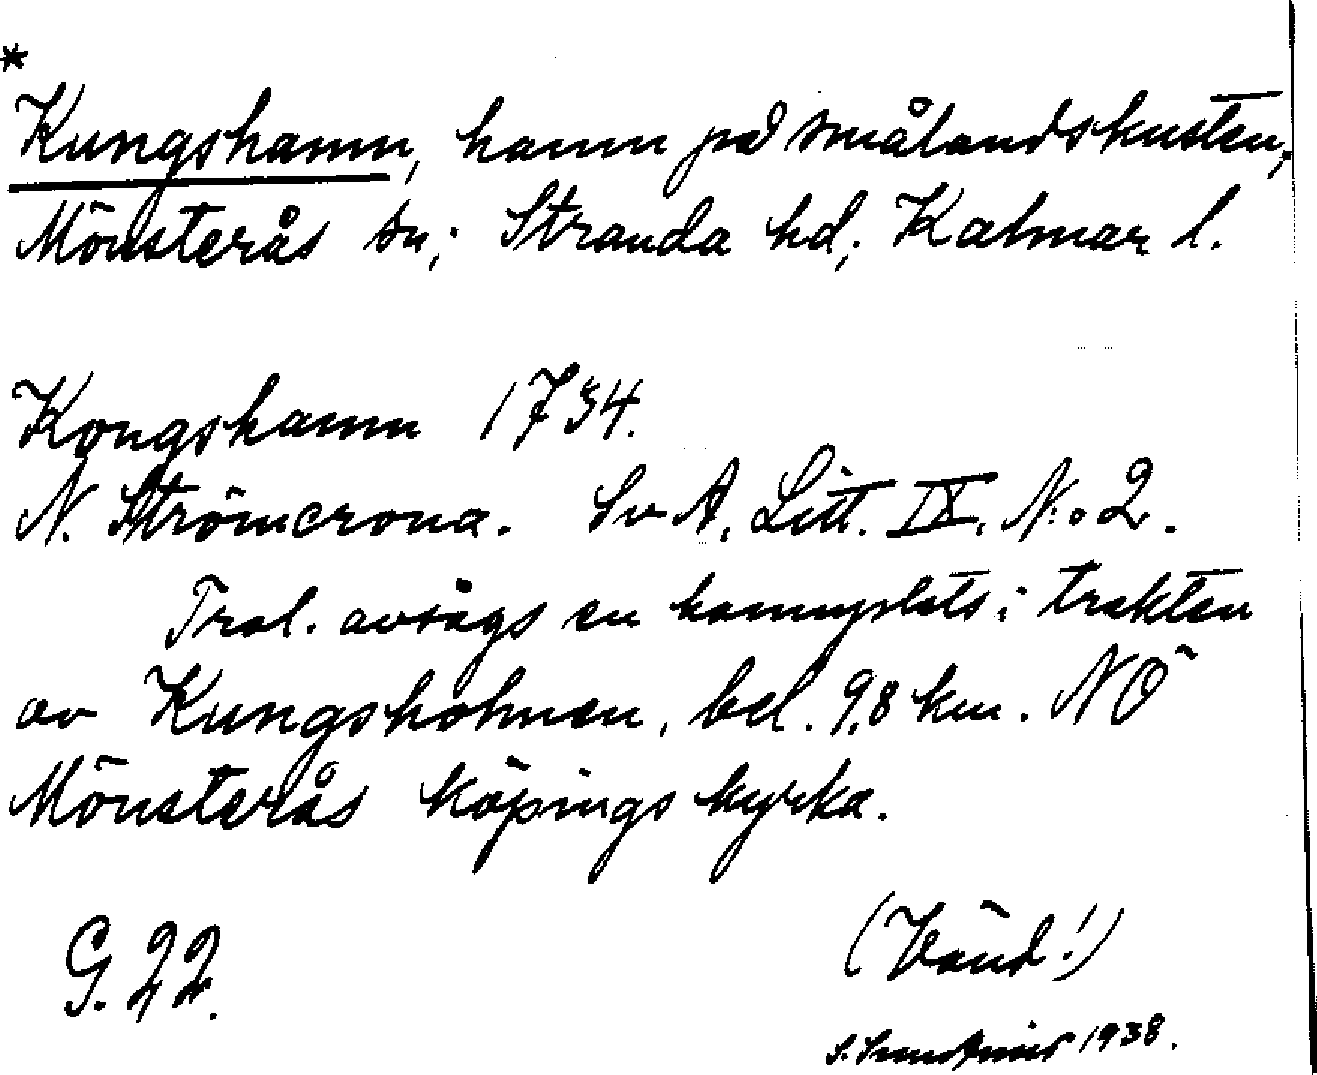 *
Kungshamn, hamn på smålandskusten,
Mönsterås sn; Stranda hd, Kalmar l.
Kongshamn 1734.
N. Strömcrona. Sv A. Litt. IX. N:o 2.
Trol. avsågs en hamnplats i trakten
av Kungsholmen, bel. 9,8 km. NÖ
Mönsterås köpings kyrka.
G. 22.
(Vänd!)
1938.